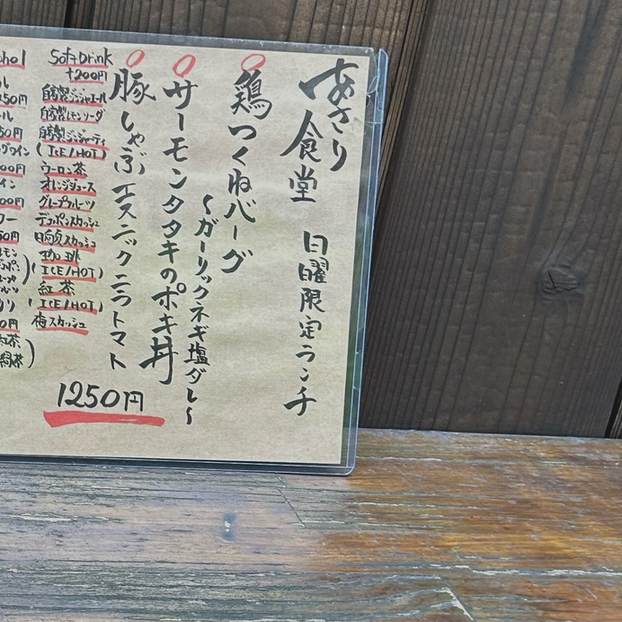 あさり食堂 日曜限定ランチ
鶏つくねバーグ
〜ガーリックネギ塩ダレ〜
サーモンタタキのポキ丼
豚しゃぶエスニックニラトマト
1250円
Soft Drink
+200円
自家製ジンジャエール
自家製レモンソーダ
自家製ジンジャーティ
(ICE/HOT)
ウーロン茶
オレンジジュース
グレープフルーツ
デコポンスカッシュ
日向夏スカッシュ
珈琲
(ICE/HOT)
紅茶
(ICE/HOT)
梅スカッシュ